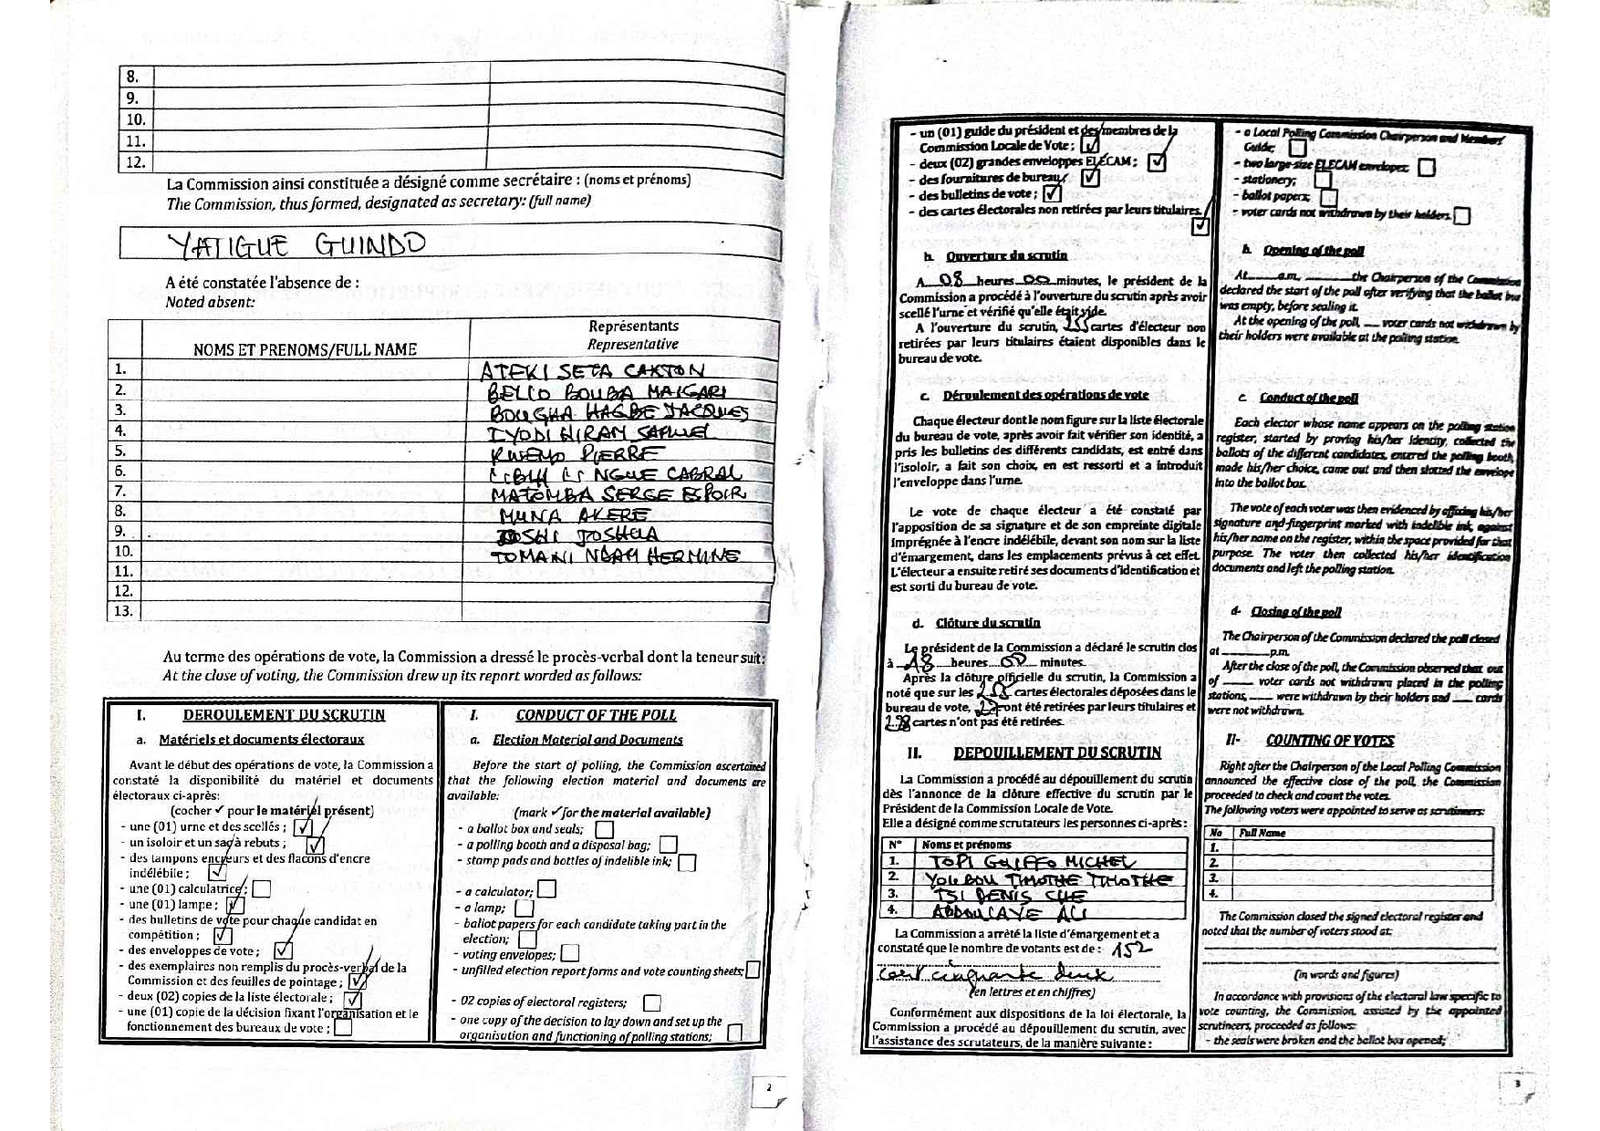 8.
9.
10.
11.
12.
La Commission ainsi constituée a désigné comme secrétaire : (noms et prénoms)
The Commission, thus formed, designated as secretary: (full name)
YATIGUE GUINDO
A été constatée l'absence de :
Noted absent:
NOMS ET PRENOMS/FULL NAME
Représentants
Representative
1. ATEKI SETA CAXTON
2. BELLO BOUBA MAIGARI
3. BOUGHA HAGBE JACQUES
4. IYODI HIRAM SAMUEL
5. KWEMO PIERRE
6. LIBII LI NGUE CABRAL
7. MATOMBA SERGE ESPOIR
8. MUNA AKERE
9. OSHI JOSHUA
10. TOMAINO NDAM HERMINE
11.
12.
13.
Au terme des opérations de vote, la Commission a dressé le procès-verbal dont la teneur suit:
At the close of voting, the Commission drew up its report worded as follows:
I. DEROULEMENT DU SCRUTIN
a. Matériels et documents électoraux
Avant le début des opérations de vote, la Commission a
constaté la disponibilité du matériel et documents
électoraux ci-après:
(cocher ✓ pour le matériel présent)
- une (01) urne et des scellés ; ☑
- un isoloir et un sac à rebuts ; ☑
- des tampons encreurs et des flacons d'encre
indélébile ; ☑
- une (01) calculatrice ; ☐
- une (01) lampe ; ☑
- des bulletins de vote pour chaque candidat en
compétition ; ☑
- des enveloppes de vote ; ☑
- des exemplaires non remplis du procès-verbal de la
Commission et des feuilles de pointage ; ☑
- deux (02) copies de la liste électorale ; ☑
- une (01) copie de la décision fixant l'organisation et le
fonctionnement des bureaux de vote ; ☐
I. CONDUCT OF THE POLL
a. Election Material and Documents
Before the start of polling, the Commission ascertained
that the following election material and documents are
available:
(mark ✓ for the material available)
- a ballot box and seals; ☐
- a polling booth and a disposal bag; ☐
- stamp pads and bottles of indelible ink; ☐
- a calculator; ☐
- a lamp; ☐
- ballot papers for each candidate taking part in the
election; ☐
- voting envelopes; ☐
- unfilled election report forms and vote counting sheets; ☐
- 02 copies of electoral registers; ☐
- one copy of the decision to lay down and set up the
organisation and functioning of polling stations; ☐
2
- un (01) guide du président et des membres de la
Commission Locale de Vote ; ☑
- deux (02) grandes enveloppes ELECAM ; ☑
- des fournitures de bureau ; ☑
- des bulletins de vote ; ☑
- des cartes électorales non retirées par leurs titulaires.
☑
b. Ouverture du scrutin
A 08 heures 00 minutes, le président de la
Commission a procédé à l'ouverture du scrutin après avoir
scellé l'urne et vérifié qu'elle était vide.
A l'ouverture du scrutin, 255 cartes d'électeur non
retirées par leurs titulaires étaient disponibles dans le
bureau de vote.
c. Déroulement des opérations de vote
Chaque électeur dont le nom figure sur la liste électorale
du bureau de vote, après avoir fait vérifier son identité, a
pris les bulletins des différents candidats, est entré dans
l'isoloir, a fait son choix, en est ressorti et a introduit
l'enveloppe dans l'urne.
Le vote de chaque électeur a été constaté par
l'apposition de sa signature et de son empreinte digitale
imprégnée à l'encre indélébile, devant son nom sur la liste
d'émargement, dans les emplacements prévus à cet effet.
L'électeur a ensuite retiré ses documents d'identification et
est sorti du bureau de vote.
d. Clôture du scrutin
Le président de la Commission a déclaré le scrutin clos
à 18 heures 00 minutes.
Après la clôture officielle du scrutin, la Commission a
noté que sur les 255 cartes électorales déposées dans le
bureau de vote, ont été retirées par leurs titulaires et
cartes n'ont pas été retirées.
II. DEPOUILLEMENT DU SCRUTIN
La Commission a procédé au dépouillement du scrutin
dès l'annonce de la clôture effective du scrutin par le
Président de la Commission Locale de Vote.
Elle a désigné comme scrutateurs les personnes ci-après :
N° Noms et prénoms
1. TOPI GUIFFO MICHEL
2. YOUBOU TIMOTHE TIMOTHE
3. TSI DENIS CHE
4. ABDOULAYE ALI
La Commission a arrêté la liste d'émargement et a
constaté que le nombre de votants est de : 152
cent cinquante deux
(en lettres et en chiffres)
Conformément aux dispositions de la loi électorale, la
Commission a procédé au dépouillement du scrutin, avec
l'assistance des scrutateurs, de la manière suivante :
- a Local Polling Commission Chairperson and Members'
Guide; ☐
- two large-size ELECAM envelopes; ☐
- stationery; ☐
- ballot papers; ☐
- voter cards not withdrawn by their holders. ☐
b. Opening of the poll
At____a.m, ______the Chairperson of the Commission
declared the start of the poll after verifying that the ballot box
was empty, before sealing it.
At the opening of the poll, __ voter cards not withdrawn by
their holders were available at the polling station.
c. Conduct of the poll
Each elector whose name appears on the polling station
register, started by proving his/her identity, collected the
ballots of the different candidates, entered the polling booth,
made his/her choice, came out and then slotted the envelope
into the ballot box.
The vote of each voter was then evidenced by affixing his/her
signature and fingerprint marked with indelible ink, against
his/her name on the register, within the space provided for that
purpose. The voter then collected his/her identification
documents and left the polling station.
d- Closing of the poll
The Chairperson of the Commission declared the poll closed
at________p.m.
After the close of the poll, the Commission observed that out
of ____ voter cards not withdrawn placed in the polling
stations, ___ were withdrawn by their holders and __ cards
were not withdrawn.
II- COUNTING OF VOTES
Right after the Chairperson of the Local Polling Commission
announced the effective close of the poll, the Commission
proceeded to check and count the votes.
The following voters were appointed to serve as scrutineers:
No Full Name
1.
2.
3.
4.
The Commission closed the signed electoral register and
noted that the number of voters stood at:
(in words and figures)
In accordance with provisions of the electoral law specific to
vote counting, the Commission, assisted by the appointed
scrutineers, proceeded as follows:
- the seals were broken and the ballot box opened;
3